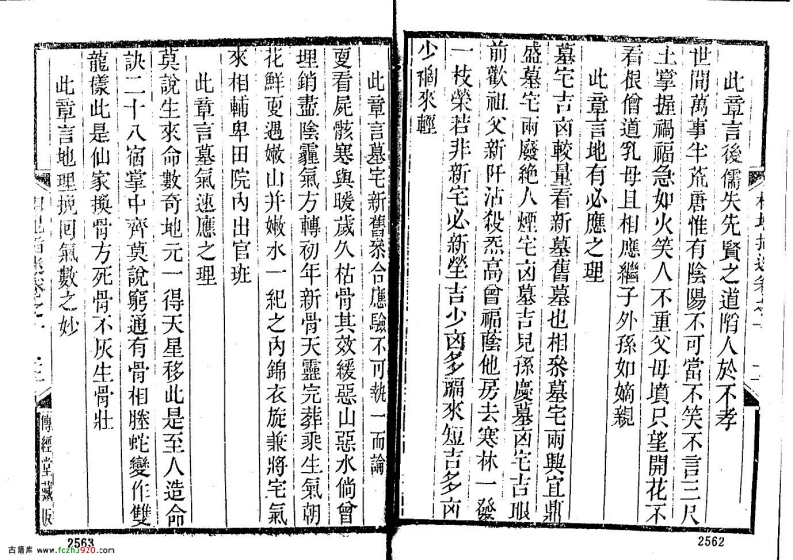 此章言後儒失先賢之道陷人於不孝
世間萬事半荒唐惟有陰陽不可當不笑不言三尺
土掌握禍福急如火笑人不重父母墳只望開花不
看根僧道乳母且相應繼子外孫如嫡親
此章言地有必應之理
墓宅吉凶較量看新墓舊墓也相叅墓宅兩興宜鼎
盛墓宅兩廢絶人煙宅凶墓吉兒孫慶墓凶宅吉眼
前歡祖父新阡沾殺炁高曾福蔭他房去寒林一發
一枝榮若非新宅必新塋吉少凶多禍來短吉多凶
少禍來輕
2562
此章言墓宅新舊叅合應驗不可執一而論
夏看屍骸寒與暖歲久枯骨其效緩惡山惡水倘曾
埋銷盡陰霾氣方轉初年新骨天靈完葬乘生氣朝
花鮮更遇嫩山并嫩水一紀之內錦衣旋兼將宅氣
來相輔卑田院內出官班
此章言墓氣速應之理
莫說生來命數奇地元一得天星移此是至人造命
訣二十八宿掌中齊莫說窮通有骨相螣蛇變作雙
龍樣此是仙家換骨方死骨不灰生骨壯
此章言地理挽回氣數之妙
傳經堂藏版
2563
古籍库 www.fczhj920.com